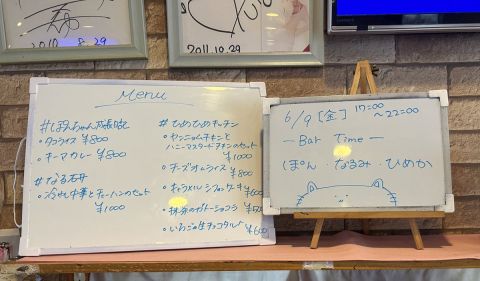 2010.8.29
2011.10.29
Menu
#ぽんちゃん成長記
・タコライス ¥800
・キーマカレー ¥800
#なる石丼
・冷やし中華とチャーハンのセット
¥1000
#ひめひめキッチン
・ヤンニョムチキンと
ハニーマスタードチキンのセット
¥1000
・チーズオムライス
¥800
・キャラメルシフォンケーキ
¥600
・抹茶のガトーショコラ ¥500
・いちごの生チョコタルト
¥600
6/9 [金] 17:00
〜22:00
ーBar Timeー
ぽん・なるみ・ひめか